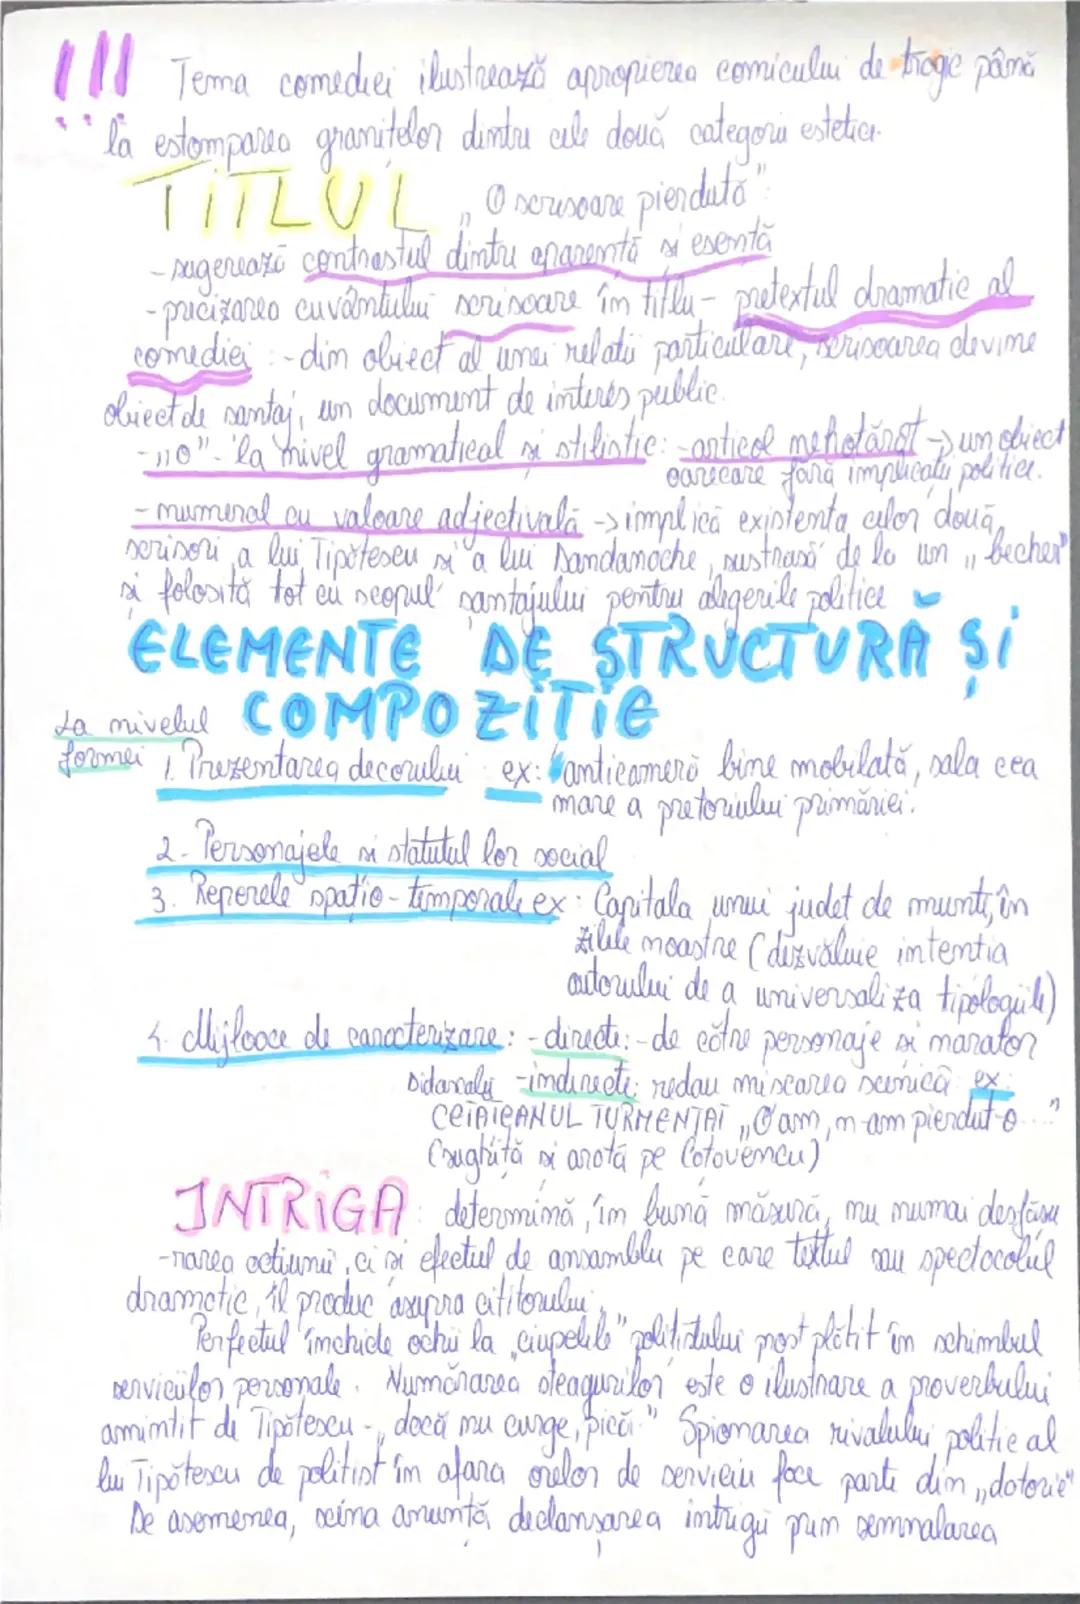 !!! Tema comediei ilustrează apropierea comicului de tragic până
la estomparea granițelor dintre cele două categorii estetice.
TITLUL „O scrisoare pierdută":
- sugerează contrastul dintre aparentă si esentă
- precizarea cuvântului scrisoare în titlu - pretextul dramatic al
comediei : - din obiect al unei relatii particulare, scrisoarea devine
obiect de santaj, un document de interes public.
- „o" - la nivel gramatical si stilistic: - articol nehotărât -> un obiect
oarecare fără implicatii politice.
- numeral cu valoare adjectivală -> implică existenta celor două
scrisori, a lui Tipătescu si a lui Dandanache, sustrasă de la un „becher"
si folosită tot cu scopul santajului pentru alegerile politice
ELEMENTE DE STRUCTURĂ ȘI
COMPOZIȚIE
La nivelul
formei 1. Prezentarea decorului ex: anticameră bine mobilată, sala cea
mare a pretoriului primăriei.
2. Personajele si statutul lor social
3. Reperele spatio-temporale ex: Capitala unui judet de munte, în
zilele noastre (dezvăluie intentia
autorului de a universaliza tipologiile)
4. Mijloace de caracterizare: - directe: - de către personaje si narator
Didascalii - indirecte: redau miscarea scenică ex:
CETĂȚEANUL TURMENTAT „O'am, n-am pierdut-o..."
(sughită si arată pe Catavencu)
INTRIGA : determină, în bună măsură, nu numai desfăsu
-rarea actiunii, ci si efectul de ansamblu pe care textul sau spectacolul
dramatic, îl produc asupra cititorului.
Perfectul închide ochii la „ciupelile" politistului prost plătit în schimbul
serviciilor personale. Numărarea steagurilor este o ilustrare a proverbului
amintit de Tipătescu - „dacă nu curge, pică." Spionarea rivalului politic al
lui Tipătescu de politist în afara orelor de serviciu face parte din „datorie"
De asemenea, scena anuntă declansarea intrigii prin semnalarea